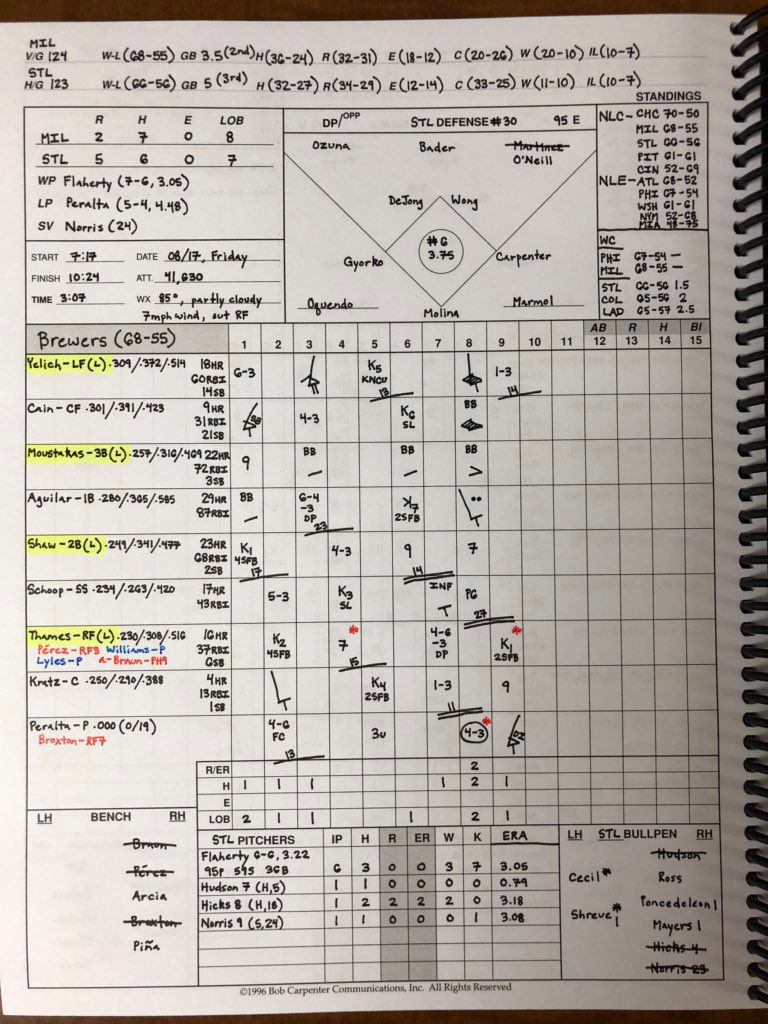 MIL
V/G 124 W-L (68-55) GB 3.5 (2nd) H (36-24) R (32-31) E (18-12) C (20-26) W (20-10) IL (10-7)
STL
H/G 123 W-L (66-56) GB 5 (3rd) H (32-27) R (34-29) E (12-14) C (33-25) W (11-10) IL (10-7)
STANDINGS
R H E LOB
MIL 2 7 0 8
STL 5 6 0 7
WP Flaherty (7-6, 3.05)
LP Peralta (5-4, 4.48)
SV Norris (24)
START 7:17 DATE 08/17, Friday
FINISH 10:24 ATT. 41,630
TIME 3:07 WX 85°, partly cloudy
7mph wind, out RF
DP/OPP STL DEFENSE #30 95 E
Ozuna Bader Martinez
O'Neill
DeJong Wong
#6
3.75
Gyorko Carpenter
Oquendo Molina Marmol
NLC- CHC 70-50
MIL 68-55
STL 66-56
PIT 61-61
CIN 52-69
NLE- ATL 68-52
PHI 67-54
WSH 61-61
NYM 52-68
MIA 48-75
WC
PHI 67-54 —
MIL 68-55 —
STL 66-56 1.5
COL 65-56 2
LAD 65-57 2.5
Brewers (68-55) 1 2 3 4 5 6 7 8 9 10 11 AB 12 R 13 H 14 BI 15
Yelich-LF (L) .309/.372/.514 18HR 6-3 K5 1-3
60RBI KNCU
14SB 13 14
Cain-CF .301/.391/.423 9HR BB 4-3 K6 BB
31RBI SL
21SB
Moustakas-3B (L) .257/.316/.469 22HR 9 BB BB BB
72RBI
3SB
Aguilar-1B .280/.365/.585 29HR BB 6-4 K7
87RBI -3 2SFB
DP
23
Shaw-2B (L) .249/.341/.477 23HR K1 4-3 9 7
68RBI 4SFB
2SB 17 14
Schoop-SS .234/.263/.420 17HR 5-3 K3 INF P6
43RBI SL 27
Thames-RF (L) .230/.308/.516 16HR K2 7* 4-6 K1*
Pérez-RF8 Williams-P 37RBI 4SFB -3 2SFB
Lyles-P a-Braun-PH9 6SB 15 DP
Kratz-C .250/.290/.388 4HR K4 1-3 9
13RBI 2SFB
1SB 11
Peralta-P .000 (0/19) 4-6 3u 4-3*
Broxton-RF7 FC
13
R/ER 2
H 1 1 1 1 2 1
E
LOB 2 1 1 1 2 1
LH BENCH RH
Braun
Pérez
Arcia
Broxton
Piña
STL PITCHERS IP H R ER W K ERA
Flaherty 6-6, 3.22
95P 59S 36B 6 3 0 0 3 7 3.05
Hudson 7 (H,5) 1 1 0 0 0 0 0.79
Hicks 8 (H,18) 1 2 2 2 2 0 3.18
Norris 9 (S,24) 1 1 0 0 0 1 3.08
LH STL BULLPEN RH
Hudson
Cecil* Ross
Poncedeleon 1
Shreve* 1
Mayers 1
Hicks 4
Norris 23
©1996 Bob Carpenter Communications, Inc. All Rights Reserved